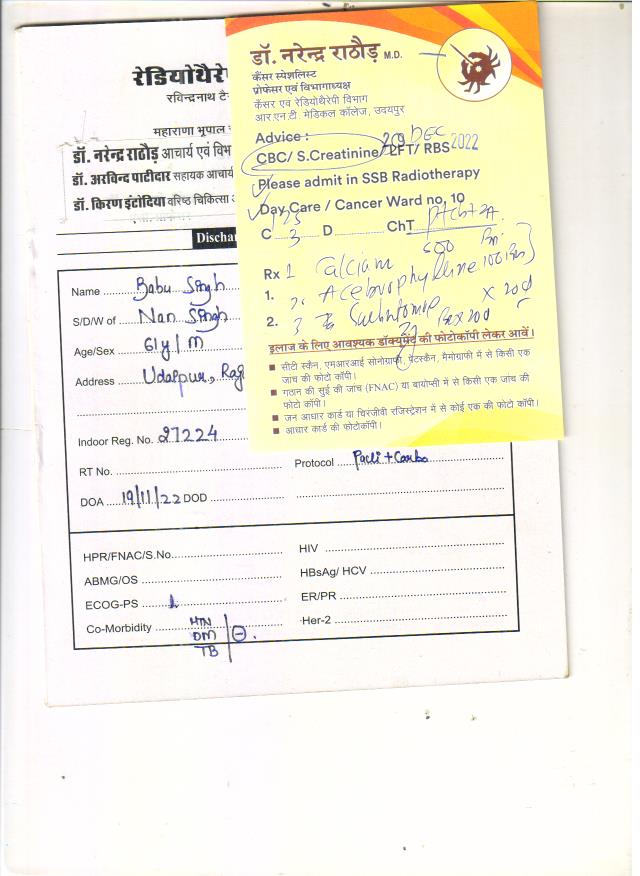 रेडियोथैरे
रविन्द्रनाथ टै
महाराणा भूपाल
डॉ. नरेन्द्र राठौड़ आचार्य एवं विभ
डॉ. अरविन्द पाटीदार सहायक आचार्य
डॉ. किरण इंटोदिया वरिष्ठ चिकित्सा
Dischar
Name Babu Singh
S/D/W of Nan Singh
Age/Sex 61y/M
Address Udaipur, Raj
Indoor Reg. No. 27224
RT No.
Protocol Pacli + Carbo
DOA 19/11/22 DOD
HPR/FNAC/S.No
HIV
ABMG/OS
HBsAg/ HCV
ECOG-PS 1
ER/PR
Co-Morbidity HTN
DM
TB
Her-2
डॉ. नरेन्द्र राठौड़ M.D.
कैंसर स्पेशलिस्ट
प्रोफेसर एवं विभागाध्यक्ष
कैंसर एवं रेडियोथैरेपी विभाग
आर.एन.टी. मेडिकल कॉलेज, उदयपुर
Advice :
DEC 2022
CBC/ S.Creatinine/ LFT/ RBS
Please admit in SSB Radiotherapy
Day Care / Cancer Ward no. 10
C 3 D ChT
500
Rx 1 Calcium
1. Acebrophylline 100
2. 3 x 20d
इलाज के लिए आवश्यक डॉक्यूमेंट की फोटोकॉपी लेकर आवें।
सीटी स्कैन, एमआरआई सोनोग्राफी, पेटस्कैन, मैमोग्राफी में से किसी एक
जांच की फोटो कॉपी।
गठान की सुई की जांच (FNAC) या बायोप्सी में से किसी एक जांच की
फोटो कॉपी।
जन आधार कार्ड या चिरंजीवी रजिस्ट्रेशन में से कोई एक की फोटो कॉपी।
आधार कार्ड की फोटोकॉपी।